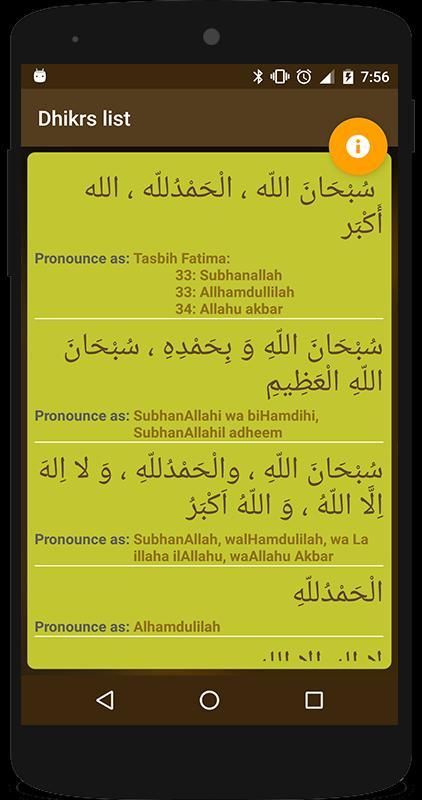 7:56
Dhikrs list
سُبْحَانَ اللّه ، الْحَمْدُللّه ، الله
أَكْبَر
Pronounce as: Tasbih Fatima:
33: Subhanallah
33: Allhamdullilah
34: Allahu akbar
سُبْحَانَ اللّهِ وَ بِحَمْدِهِ ، سُبْحَانَ
اللّهِ الْعَظِيمِ
Pronounce as: SubhanAllahi wa biHamdihi,
SubhanAllahil adheem
سُبْحَانَ اللّهِ ، والْحَمْدُللّهِ ، وَ لا اِلهَ
اِلَّا اللّهُ ، وَ اللّهُ اَكْبَرُ
Pronounce as: SubhanAllah, walHamdulilah, wa La
illaha ilAllahu, waAllahu Akbar
الْحَمْدُللّهِ
Pronounce as: Alhamdulilah